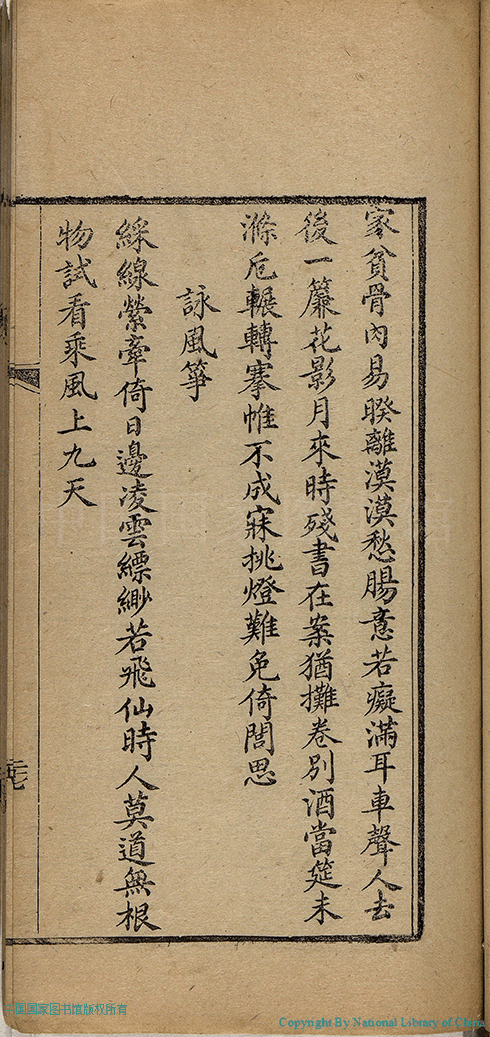 家貧骨肉易暌離漠漠愁腸意若癡滿耳車聲人去
後一簾花影月來時殘書在案猶攤卷別酒當筵未
滌卮輾轉搴帷不成寐挑燈難免倚閭思
詠風箏
綵線縈牽倚日邊凌雲縹緲若飛仙時人莫道無根
物試看乘風上九天
中国国家图书馆版权所有
Copyright By National Library of China